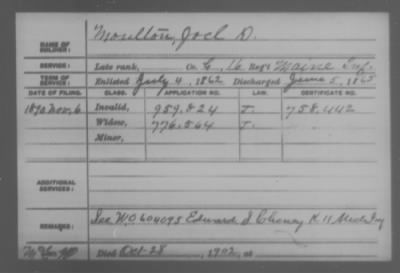 NAME OF SOLDIER: Moulton, Joel D.
SERVICE: Late rank, Co. G, 16 Reg't Maine Inf.
TERM OF SERVICE: Enlisted July 4, 1862 Discharged June 5, 1865
DATE OF FILING. CLASS. APPLICATION NO. LAW. CERTIFICATE NO.
1890 Nov. 6 Invalid, 959.824 J. 758.442
Widow, 776.564 J.
Minor,
ADDITIONAL SERVICES:
REMARKS: See WO 604095 Edward S. K 11 Inf
Died Oct-28, 1902, at